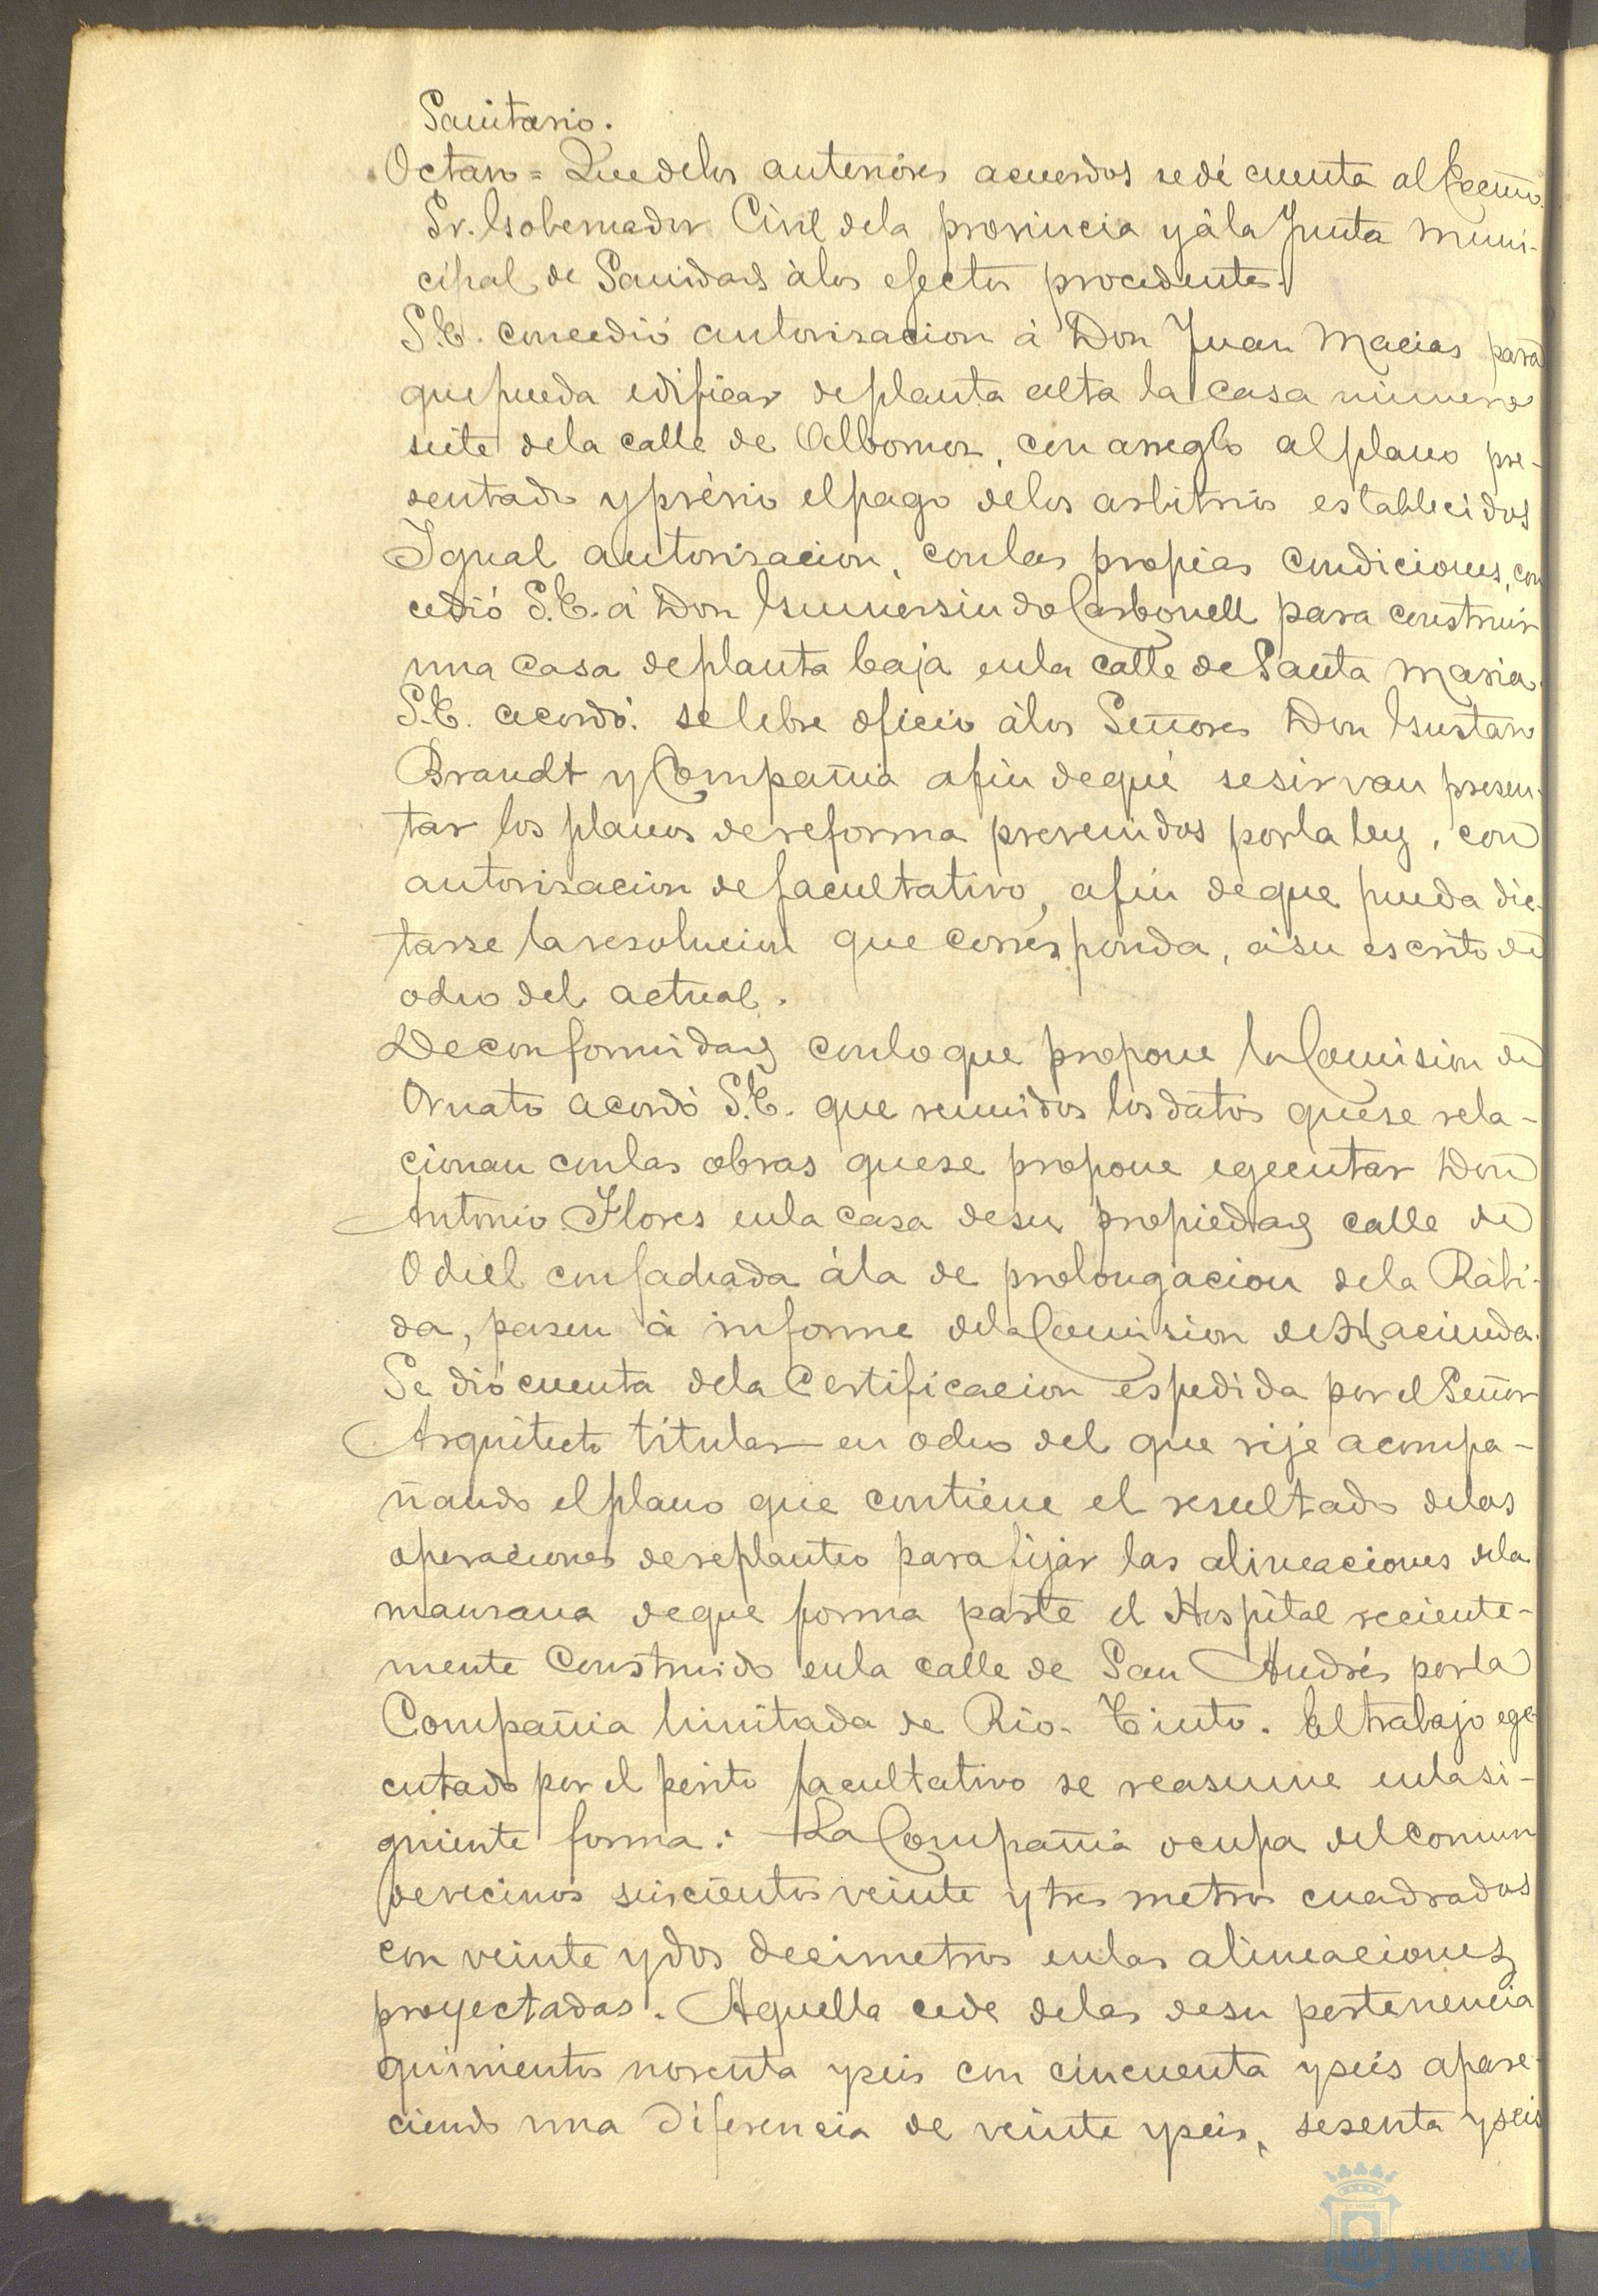 Sanitario.
Octavo = Que delos anteriores acuerdos se dé cuenta al Excmo.
Sr. Gobernador Civil dela provincia y à la Junta Muni-
cipal de Sanidad àlos efectos procedentes.
S.E. concedió autorizacion à Don Juan Macias para
que pueda edificar de planta alta la casa número
siete dela calle de Albornoz, con arreglo al plano pre-
sentado y prévio el pago delos arbitrios establecidos
Igual autorizacion, con las propias condiciones, con
cedió S.E. à Don Gumersindo Carbonell para construir
una casa de planta baja en la calle de Santa Maria.
S.E. acordó se libre oficio àlos Señores Don Gustavo
Brandt y Compañia afin de que se sirvan presen-
tar los planos de reforma prevenidos por la ley, con
autorizacion de facultativo, afin de que pueda dic-
tarse la resolucion que corresponda, à su escrito de
ocho del actual.
De conformidad con lo que propone la Comision de
Ornato acordó S.E. que reunidos los datos que se rela-
cionan con las obras que se propone egecutar Don
Antonio Flores en la casa de su propiedad calle de
Odiel con fachada àla de prolongacion dela Rábi-
da, pasen à informe dela Comision de Hacienda.
Se dió cuenta dela Certificacion espedida por el Señor
Arquitecto titular en ocho del que rije acompa-
ñando el plano que contiene el resultado delas
operaciones de replanteo para fijar las alineaciones dela
manzana de que forma parte el Hospital reciente-
mente Construido en la calle de San Andrés por la
Compañia limitada de Rio-Tinto. El trabajo ege-
cutado por el perito facultativo se reasume en la si-
guiente forma: La Compañia ocupa del comun
de vecinos seiscientos veinte y tres metros cuadrados
con veinte y dos decimetros en las alineaciones
proyectadas. Aquella cede delas de su pertenencia
quinientos noventa y seis con cincuenta y seis apare-
ciendo una diferencia de veinte y seis, sesenta y seis
HUELVA